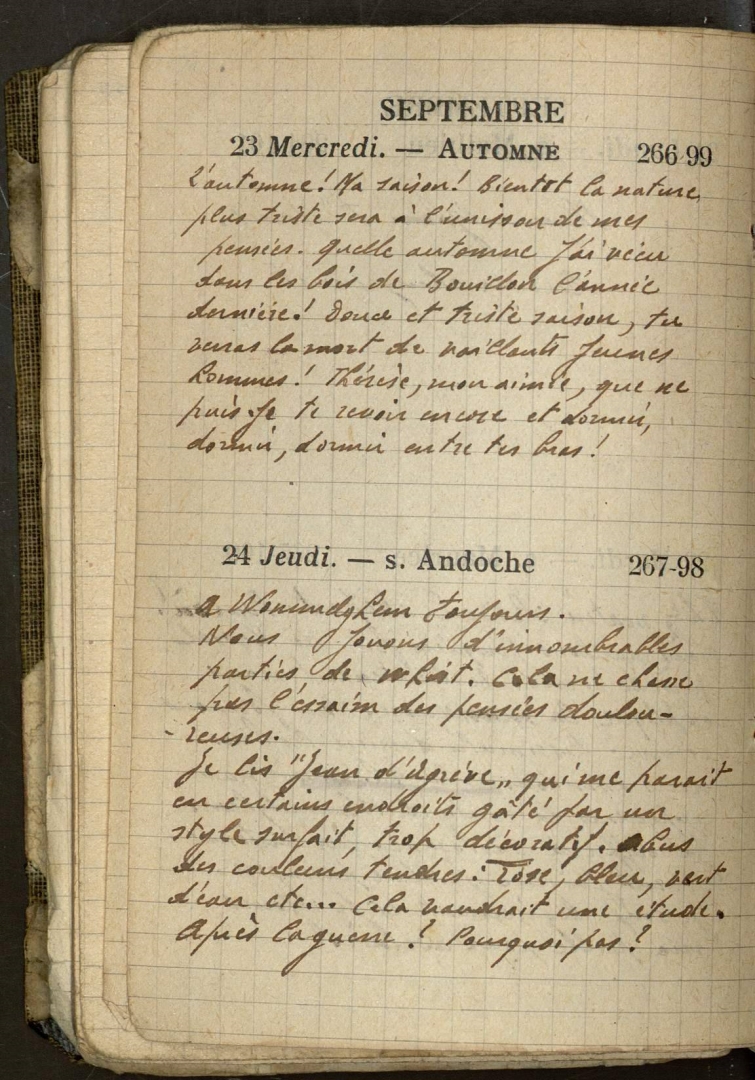 SEPTEMBRE
23 Mercredi. — AUTOMNE 266-99
L'automne! Ma saison! Bientôt la nature
plus triste sera à l'unisson de mes
pensées. Quelle automne j'ai vécu
dans les bois de Bouillon l'année
dernière! Douce et triste saison, tu
verras la mort de vaillants jeunes
hommes! Thérèse, mon aimée, que ne
puis-je te revoir encore et dormir,
dormir, dormir entre tes bras!
24 Jeudi. — s. Andoche 267-98
A toujours.
Nous jouons d'innombrables
parties de whist. Cela ne chasse
pas l'essaim des pensées doulou-
reuses.
Je lis "Jean d'Agrève„ qui me parait
en certains endroits gâté par un
style surfait, trop décoratif. abus
des couleurs tendres: rose, bleu, vert
d'eau etc... Cela vaudrait une étude.
Après la guerre? Pourquoi pas?